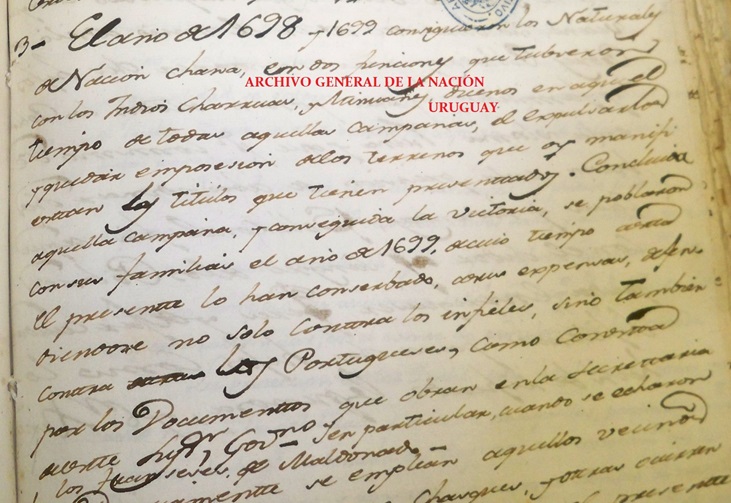 3- El año de 1698 y 1699 consiguieron los Naturales
de Nacion chana, en dos funciones que tubieron
ARCHIVO GENERAL DE LA NACIÓN
URUGUAY
con los Indios Charruas, y Minuanes dueños en aquel
tiempo de todas aquellas campañas, el expulsarlos
y quedar em posesion de los terrenos que oy manifi
estan los titulos que tienen presentados. Concluida
aquella campaña, y conseguida la victoria, se poblaron
con sus familias el año de 1699, de cuio tiempo asta
el presente lo han conserbado, a sus expensas, defen
diendose no solo contra los infieles, sino tambien
contra los Portugueses, como consta
por los Documentos que obran en la Secretaria
de este Supr Govno y en particular, cuando se echaron
los Franseses de Maldonado
se emplean aquellos vecinos
Chasques, y otras ocurren
presente